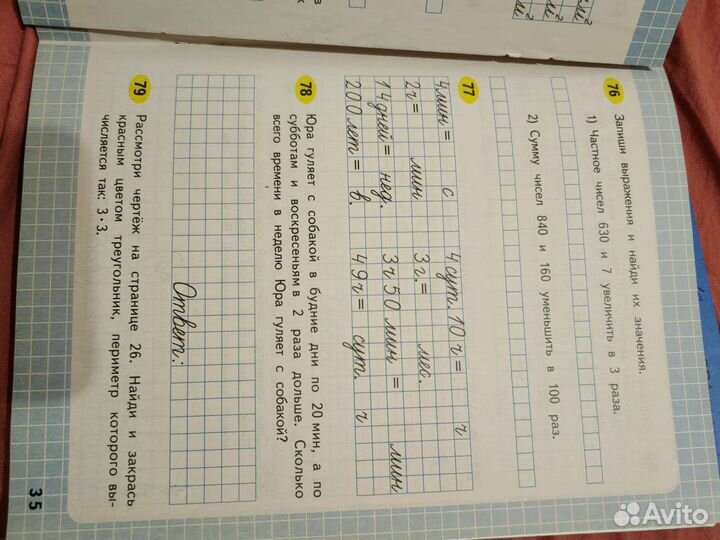 76 Запиши выражения и найди их значения.
1) Частное чисел 630 и 7 увеличить в 3 раза.
2) Сумму чисел 840 и 160 уменьшить в 100 раз.
77
4 мин = с 4 сут. 10 ч = ч
2 ч = мин 3 г. = мес.
14 дней = нед. 3 ч 50 мин = мин
200 лет = в. 49 ч = сут. ч
78 Юра гуляет с собакой в будние дни по 20 мин, а по
субботам и воскресеньям в 2 раза дольше. Сколько
всего времени в неделю Юра гуляет с собакой?
Ответ:
79 Рассмотри чертёж на странице 26. Найди и закрась
красным цветом треугольник, периметр которого вы-
числяется так: 3 · 3.
35
Avito